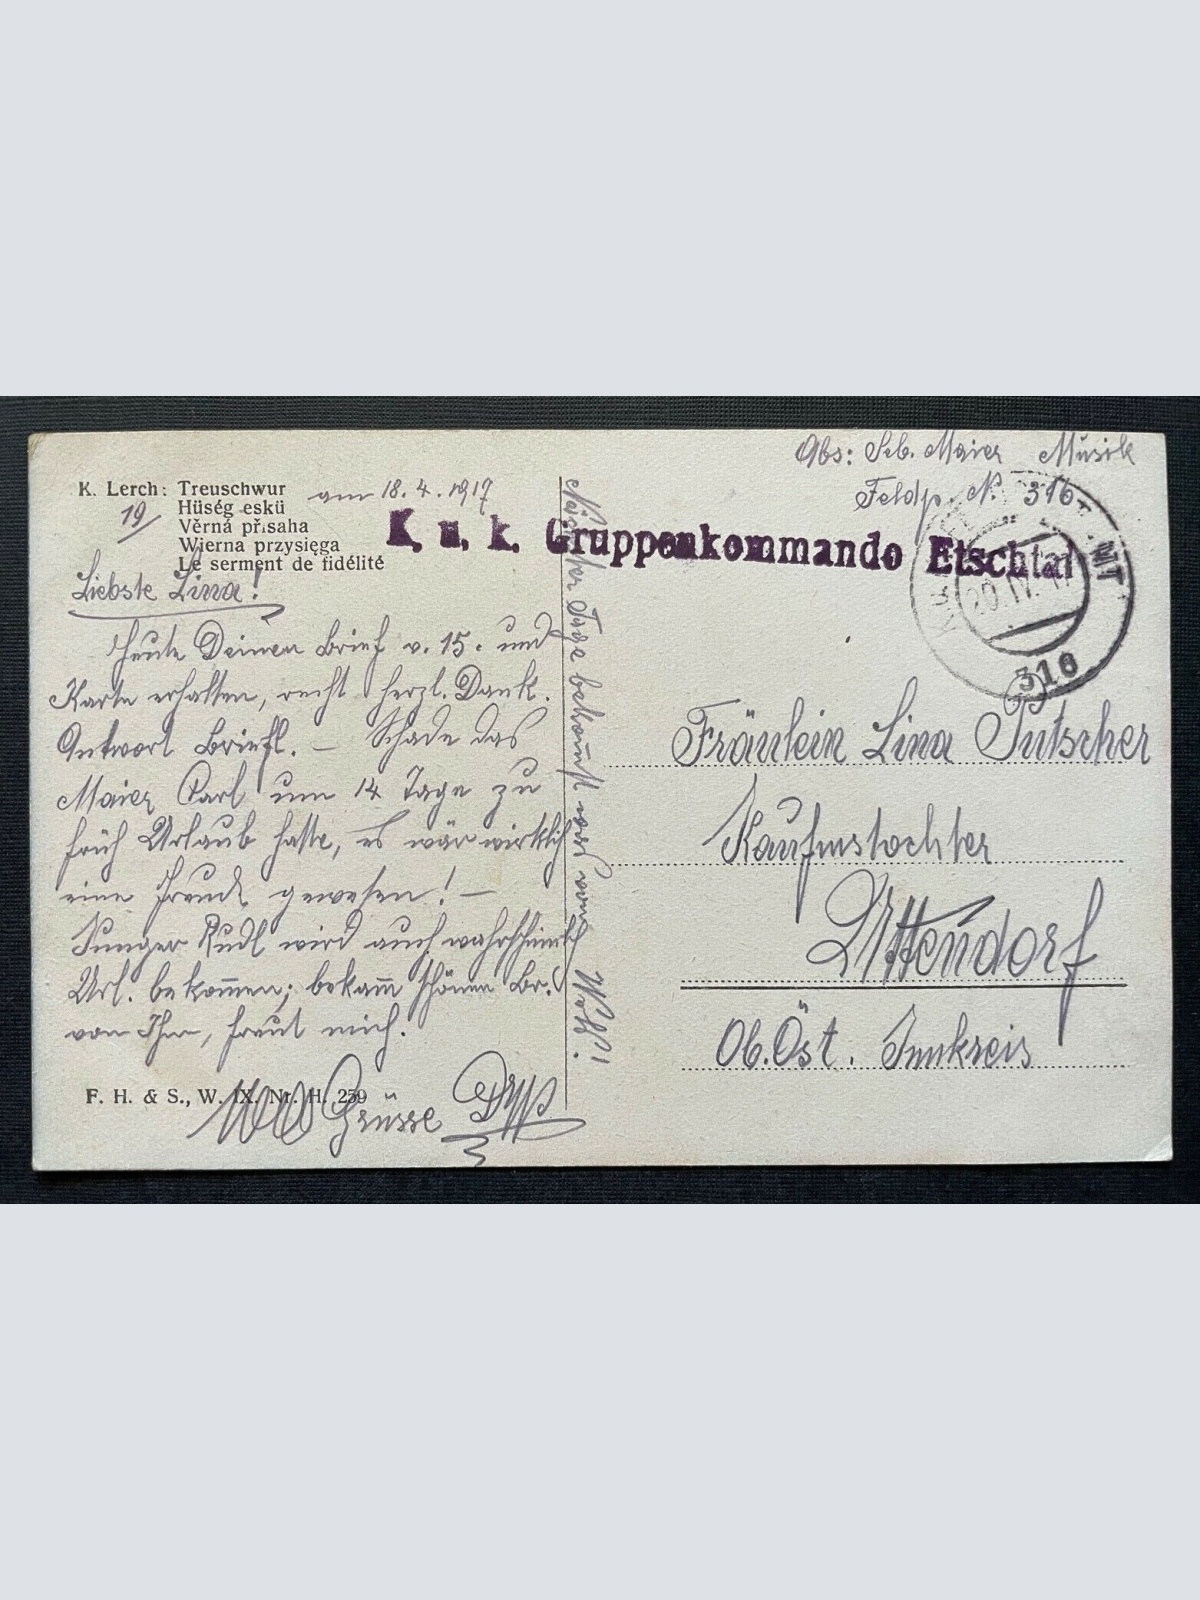 Abs: Seb. Maier Musik
Feldp. N. 316
K. Lerch: Treuschwur am 18.4.1917
19/ Hüség eskü
Věrná přísaha
Wierna przysięga
Le serment de fidélité
K. u. k. Gruppenkommando Etschtal
20. IV. 17
316
Liebste Lina!
Heute Deinen Brief v. 15. und
Karte erhalten, recht herzl. Dank.
Antwort Briefl. – Schade das
Maier Carl um 14 Tage zu
früh Urlaub hatte, es wär wirklich
eine Freude gewesen! –
Junger Rudl wird auch wahrscheinlich
Url. bekom̅en; bekam̅ schönen Br.
von Ihm, freut mich.
Grüsse
Nächster Tage
Fräulein Lina Putscher
Kaufmstochter
Uttendorf
Ob. Öst. Innkreis
F. H. & S., W. IX. Nr. H. 259